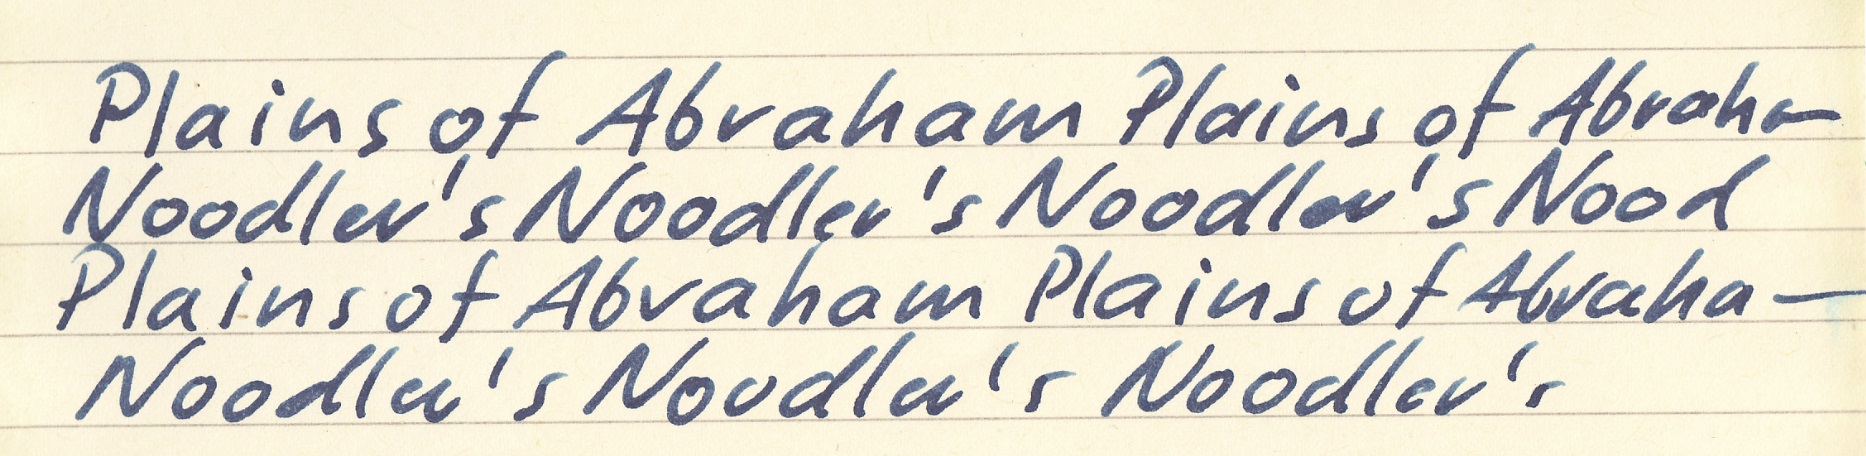 Plains of Abraham Plains of Abraha—
Noodler's Noodler's Noodler's Nood
Plains of Abraham Plains of Abraha—
Noodler's Noodler's Noodler's